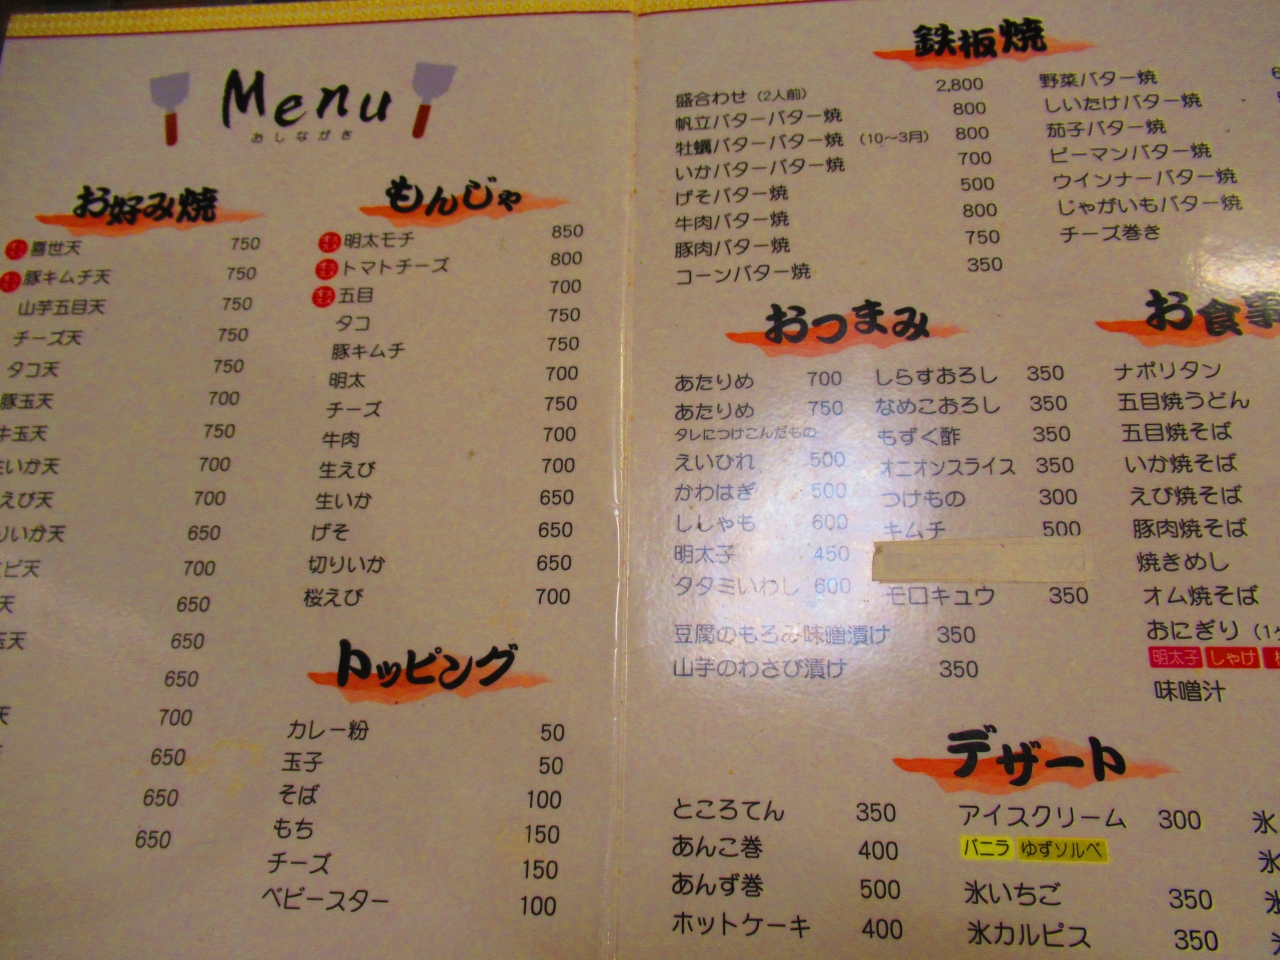 Menu
おしながき
お好み焼
喜世天 750
豚キムチ天 750
山芋五目天 750
チーズ天 750
タコ天 750
豚玉天 700
牛玉天 750
生いか天 700
えび天 700
りいか天 650
ビ天 700
天 650
玉天 650
650
天 700
650
650
650
もんじゃ
明太モチ 850
トマトチーズ 800
五目 700
タコ 750
豚キムチ 750
明太 700
チーズ 750
牛肉 700
生えび 700
生いか 650
げそ 650
切りいか 650
桜えび 700
トッピング
カレー粉 50
玉子 50
そば 100
もち 150
チーズ 150
ベビースター 100
鉄板焼
盛合わせ(2人前) 2,800
帆立バターバター焼 800
牡蠣バターバター焼 (10〜3月) 800
いかバターバター焼 700
げそバター焼 500
牛肉バター焼 800
豚肉バター焼 750
コーンバター焼 350
野菜バター焼
しいたけバター焼
茄子バター焼
ピーマンバター焼
ウインナーバター焼
じゃがいもバター焼
チーズ巻き
おつまみ
あたりめ 700
あたりめ 750
タレにつけこんだもの
えいひれ 500
かわはぎ 500
ししゃも 600
明太子 450
タタミいわし 600
豆腐のもろみ味噌漬け 350
山芋のわさび漬け 350
しらすおろし 350
なめこおろし 350
もずく酢 350
オニオンスライス 350
つけもの 300
キムチ 500
モロキュウ 350
お食事
ナポリタン
五目焼うどん
五目焼そば
いか焼そば
えび焼そば
豚肉焼そば
焼きめし
オム焼そば
おにぎり (1
明太子 しゃけ
味噌汁
デザート
ところてん 350
あんこ巻 400
あんず巻 500
ホットケーキ 400
アイスクリーム 300
バニラ ゆずソルベ
氷いちご 350
氷カルピス 350
氷
氷
氷